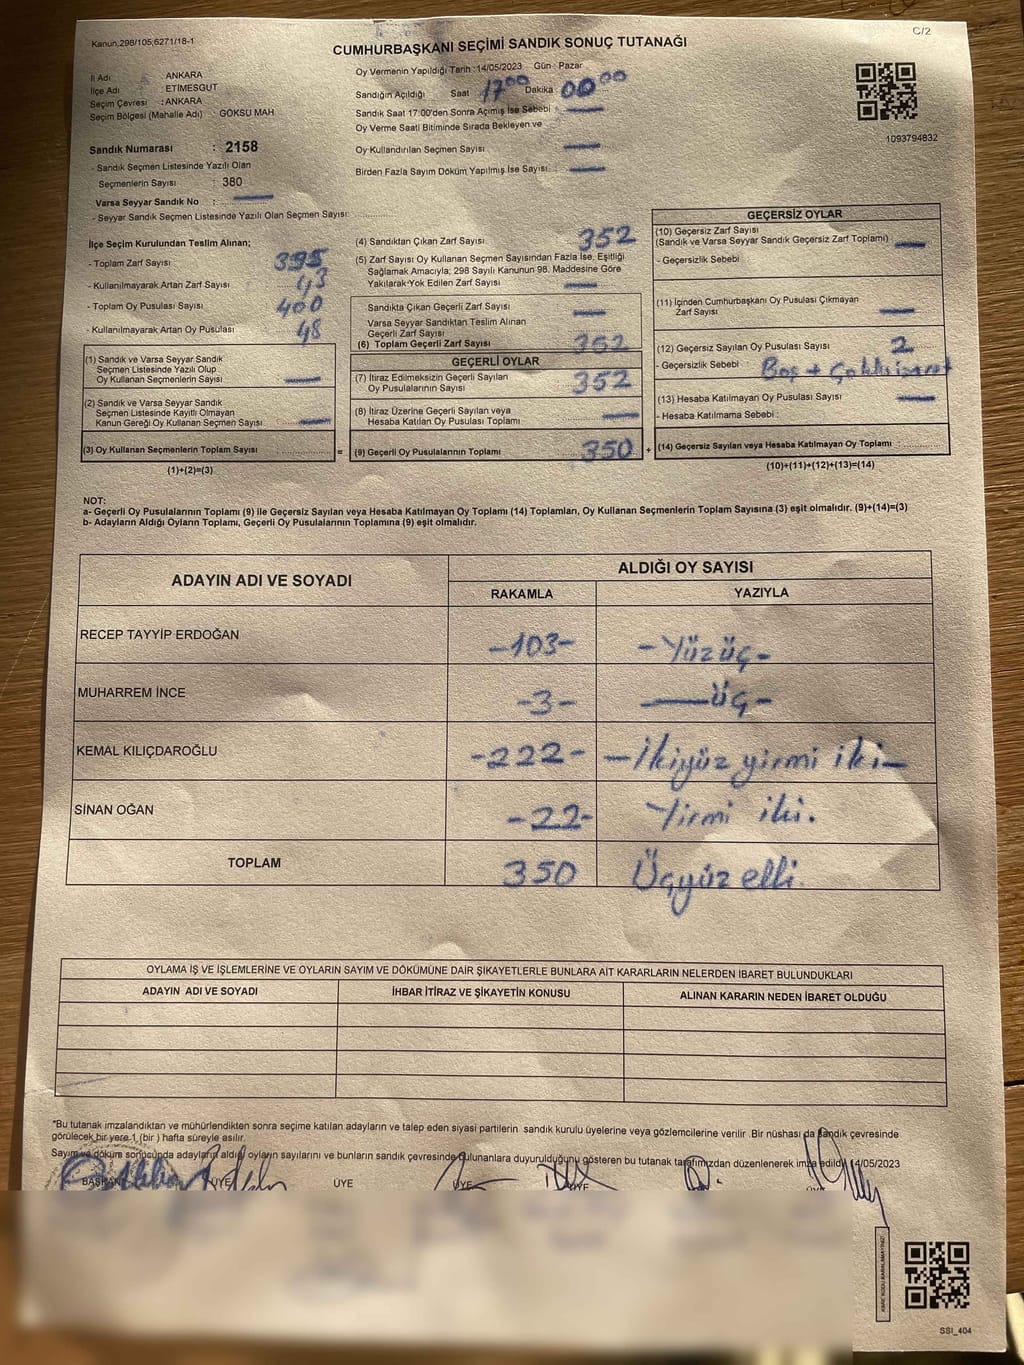 Kanun.298/105,6271/18-1
C/2
CUMHURBAŞKANI SEÇİMİ SANDIK SONUÇ TUTANAĞI
İl Adı : ANKARA
İlçe Adı : ETİMESGUT
Seçim Çevresi : ANKARA
Seçim Bölgesi (Mahalle Adı) : GÖKSU MAH
Sandık Numarası : 2158
- Sandık Seçmen Listesinde Yazılı Olan
Seçmenlerin Sayısı : 380
Varsa Seyyar Sandık No :
- Seyyar Sandık Seçmen Listesinde Yazılı Olan Seçmen Sayısı:
Oy Vermenin Yapıldığı Tarih :14/05/2023 Gün : Pazar
Sandığın Açıldığı Saat 17 00 Dakika 00 00
Sandık Saat 17:00'den Sonra Açılmış İse Sebebi :
Oy Verme Saati Bitiminde Sırada Bekleyen ve
Oy Kullandırılan Seçmen Sayısı
Birden Fazla Sayım Döküm Yapılmış İse Sayısı :
1093794832
İlçe Seçim Kurulundan Teslim Alınan;
- Toplam Zarf Sayısı 395
- Kullanılmayarak Artan Zarf Sayısı 43
- Toplam Oy Pusulası Sayısı 400
- Kullanılmayarak Artan Oy Pusulası 48
(1) Sandık ve Varsa Seyyar Sandık
Seçmen Listesinde Yazılı Olup
Oy Kullanan Seçmenlerin Sayısı
(2) Sandık ve Varsa Seyyar Sandık
Seçmen Listesinde Kayıtlı Olmayan
Kanun Gereği Oy Kullanan Seçmen Sayısı
(3) Oy Kullanan Seçmenlerin Toplam Sayısı =
(1)+(2)=(3)
(4) Sandıktan Çıkan Zarf Sayısı 352
(5) Zarf Sayısı Oy Kullanan Seçmen Sayısından Fazla İse, Eşitliği
Sağlamak Amacıyla; 298 Sayılı Kanunun 98. Maddesine Göre
Yakılarak Yok Edilen Zarf Sayısı
Sandıkta Çıkan Geçerli Zarf Sayısı
Varsa Seyyar Sandıktan Teslim Alınan
Geçerli Zarf Sayısı
(6) Toplam Geçerli Zarf Sayısı 352
GEÇERLİ OYLAR
(7) İtiraz Edilmeksizin Geçerli Sayılan
Oy Pusulalarının Sayısı 352
(8) İtiraz Üzerine Geçerli Sayılan veya
Hesaba Katılan Oy Pusulası Toplamı
(9) Geçerli Oy Pusulalarının Toplamı 350 +
GEÇERSİZ OYLAR
(10) Geçersiz Zarf Sayısı
(Sandık ve Varsa Seyyar Sandık Geçersiz Zarf Toplamı)
- Geçersizlik Sebebi
(11) İçinden Cumhurbaşkanı Oy Pusulası Çıkmayan
Zarf Sayısı
(12) Geçersiz Sayılan Oy Pusulası Sayısı 2
- Geçersizlik Sebebi Boş +
(13) Hesaba Katılmayan Oy Pusulası Sayısı
- Hesaba Katılmama Sebebi :
(14) Geçersiz Sayılan veya Hesaba Katılmayan Oy Toplamı
(10)+(11)+(12)+(13)=(14)
NOT:
a- Geçerli Oy Pusulalarının Toplamı (9) ile Geçersiz Sayılan veya Hesaba Katılmayan Oy Toplamı (14) Toplamları, Oy Kullanan Seçmenlerin Toplam Sayısına (3) eşit olmalıdır. (9)+(14)=(3)
b- Adayların Aldığı Oyların Toplamı, Geçerli Oy Pusulalarının Toplamına (9) eşit olmalıdır.
ADAYIN ADI VE SOYADI
ALDIĞI OY SAYISI
RAKAMLA YAZIYLA
RECEP TAYYİP ERDOĞAN -103- -Yüzüç-
MUHARREM İNCE -3- -Üç-
KEMAL KILIÇDAROĞLU -222- -İkiyüz yirmi iki-
SİNAN OĞAN -22- Yirmi iki.
TOPLAM 350 Üçyüz elli.
OYLAMA İŞ VE İŞLEMLERİNE VE OYLARIN SAYIM VE DÖKÜMÜNE DAİR ŞİKAYETLERLE BUNLARA AİT KARARLARIN NELERDEN İBARET BULUNDUKLARI
ADAYIN ADI VE SOYADI
İHBAR İTİRAZ VE ŞİKAYETİN KONUSU
ALINAN KARARIN NEDEN İBARET OLDUĞU
"Bu tutanak imzalandıktan ve mühürlendikten sonra seçime katılan adayların ve talep eden siyasi partilerin sandık kurulu üyelerine veya gözlemcilerine verilir .Bir nüshası da sandık çevresinde
görülecek bir yere 1 (bir ) hafta süreyle asılır.
Sayım ve döküm sonucunda adayların aldığı oyların sayılarını ve bunların sandık çevresinde bulunanlara duyurulduğunu gösteren bu tutanak tarafımızdan düzenlenerek imza edildi. 14/05/2023
BAŞKAN ÜYE ÜYE ÜYE ÜYE
SSI_404